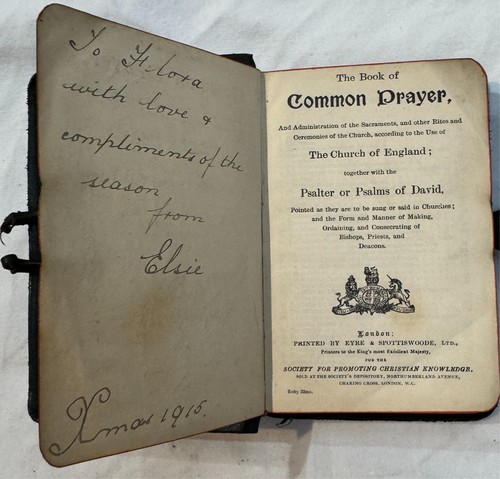 To Flora
with love &
compliments of the
season
from
Elsie
Xmas 1915.
The Book of
Common Prayer,
And Administration of the Sacraments, and other Rites and
Ceremonies of the Church, according to the Use of
The Church of England;
together with the
Psalter or Psalms of David,
Pointed as they are to be sung or said in Churches;
and the Form and Manner of Making,
Ordaining, and Consecrating of
Bishops, Priests, and
Deacons.
London:
PRINTED BY EYRE & SPOTTISWOODE, LTD.,
Printers to the King's most Excellent Majesty,
FOR THE
SOCIETY FOR PROMOTING CHRISTIAN KNOWLEDGE,
SOLD AT THE SOCIETY'S DEPOSITORY, NORTHUMBERLAND AVENUE,
CHARING CROSS, LONDON, W.C.
Ruby 32mo.